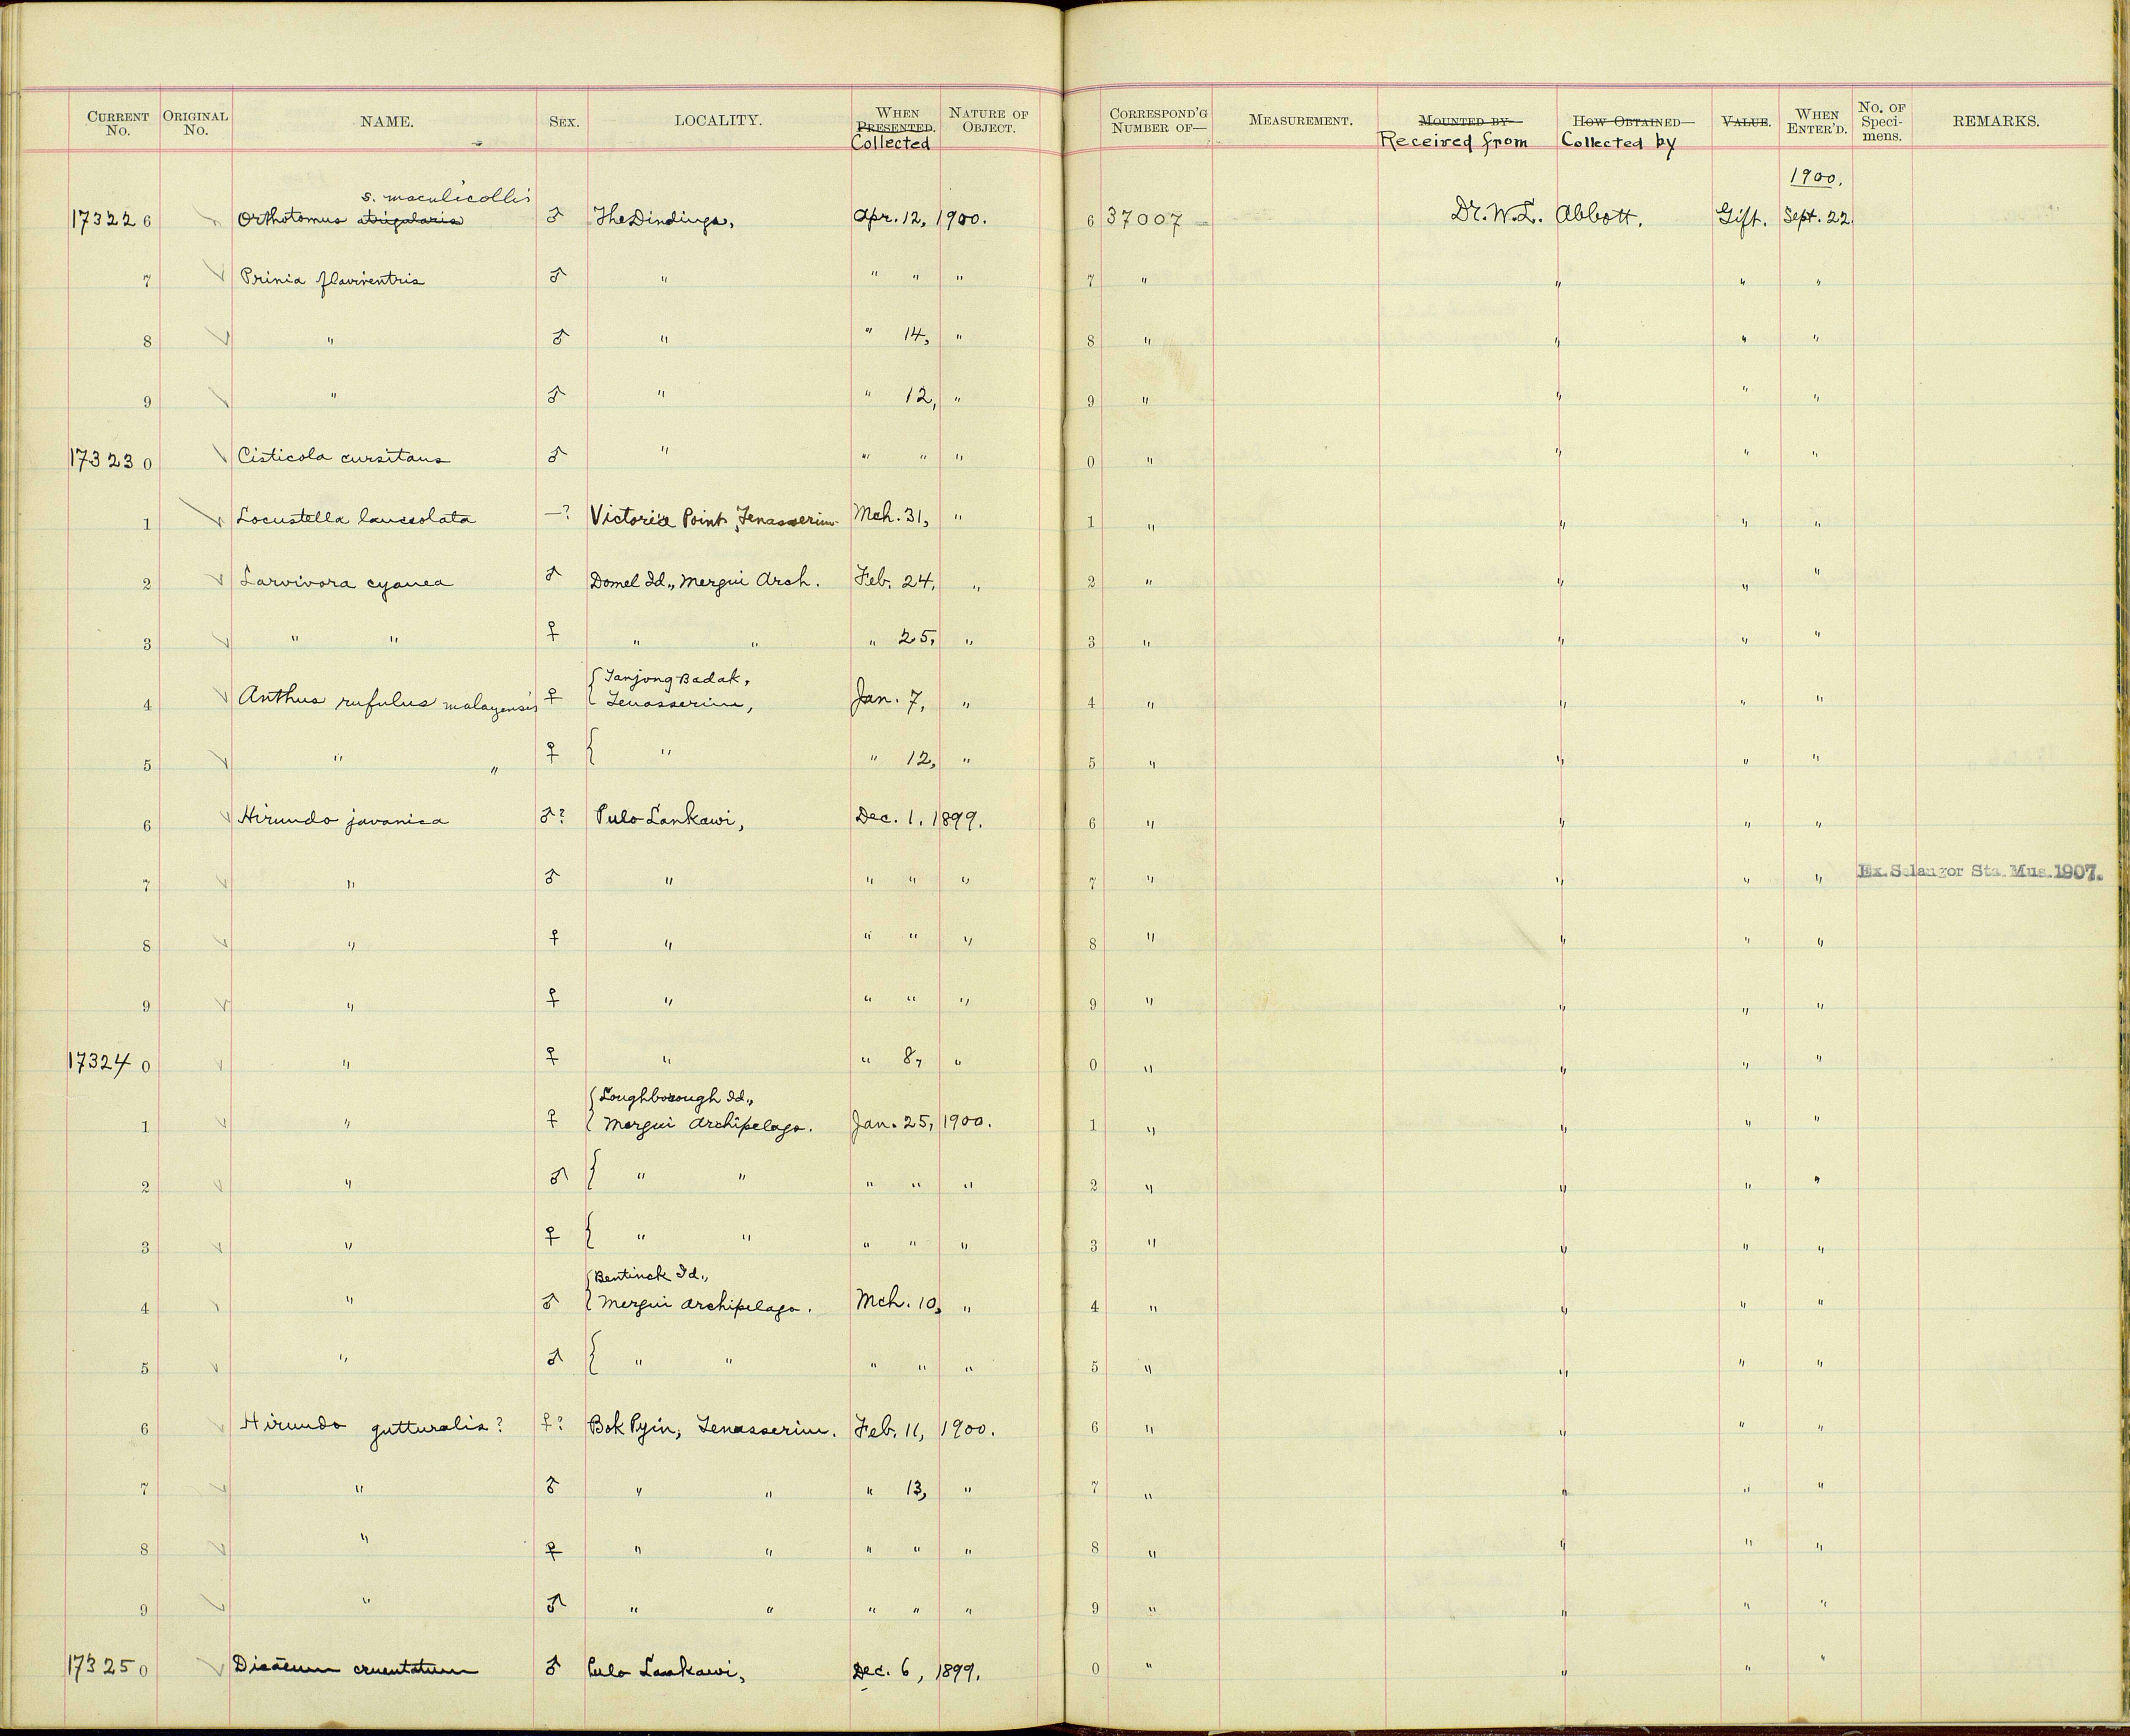 CURRENT No. ORIGINAL No. NAME. SEX. LOCALITY. WHEN PRESENTED. Collected NATURE OF OBJECT. CORRESPOND'G NUMBER OF— MEASUREMENT. MOUNTED BY— Received from HOW OBTAINED— Collected by VALUE. WHEN ENTER'D. No. OF Specimens. REMARKS.
s. maculicollis 1900.
17322 6 Orthotomus atrigularis ♂ The Dindings, Apr. 12, 1900. 6 37007 Dr. W. L. Abbott. Gift. Sept. 22
7 Prinia flaviventris ♂ " " " " 7 " " " "
8 " ♂ " " 14, " 8 " " " "
9 " ♂ " " 12, " 9 " " " "
17323 0 Cisticola cursitans ♂ " " " " 0 " " " "
1 Locustella lanceolata —? Victoria Point, Tenasserim Mch. 31, " 1 " " " "
2 Larvivora cyanea ♂ Domel Id., Mergui Arch. Feb. 24, " 2 " " " "
3 " " ♀ " " " 25, " 3 " " " "
{ Tanjong Badak,
4 Anthus rufulus malayensis ♀ Tenasserim, Jan. 7, " 4 " " " "
5 " " ♀ { " " 12, " 5 " " " "
6 Hirundo javanica ♂? Pulo Lankawi, Dec. 1, 1899. 6 " " " "
7 " ♂ " " " " 7 " " " " Ex. Selangor Sta. Mus. 1907.
8 " ♀ " " " " 8 " " " "
9 " ♀ " " " " 9 " " " "
17324 0 " ♀ " " 8, " 0 " " " "
{ Loughborough Id.,
1 " ♀ Mergui Archipelago. Jan. 25, 1900. 1 " " " "
2 " ♂ { " " " " " 2 " " " "
3 " ♀ { " " " " " 3 " " " "
{ Bentinck Id.,
4 " ♂ Mergui Archipelago. Mch. 10, " 4 " " " "
5 " ♂ { " " " " " 5 " " " "
6 Hirundo gutturalis? ♀? Bok Pyin, Tenasserim. Feb. 11, 1900. 6 " " " "
7 " ♂ " " " 13, " 7 " " " "
8 " ♀ " " " " " 8 " " " "
9 " ♂ " " " " " 9 " " " "
17325 0 Dicaeum cruentatum ♂ Pulo Lankawi, Dec. 6, 1899. 0 " " " "